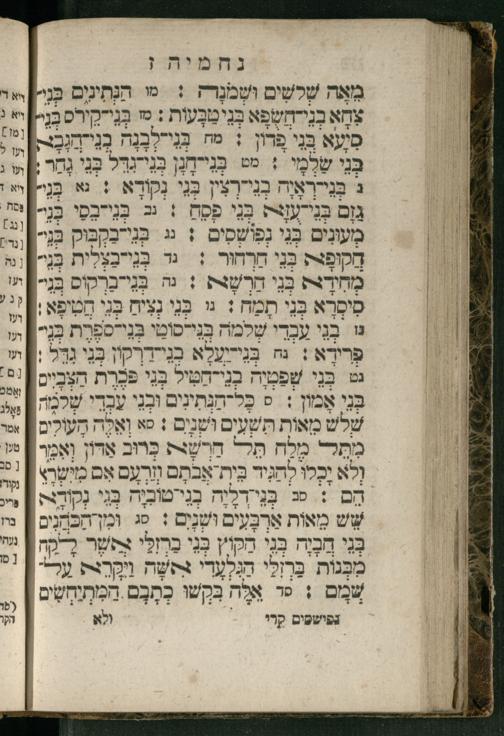 נחמיה ז
מֵאָה שְׁלֹשִׁים וּשְׁמֹנָה : מו הַנְּתִינִים בְּנֵי־
צִחָא בְנֵי־חֲשֻׂפָא בְּנֵי טַבָּעוֹת : מז בְּנֵי־קֵירֹס בְּנֵי־
סִיעָא בְּנֵי פָדוֹן : מח בְּנֵי־לְבָנָה בְנֵי־חֲגָבָא
בְּנֵי שַׁלְמָי : מט בְּנֵי־חָנָן בְּנֵי־גִדֵּל בְּנֵי גָחַר :
נ בְּנֵי־רְאָיָה בְנֵי־רְצִין בְּנֵי נְקוֹדָא : נא בְּנֵי־
גַזָּם בְּנֵי־עֻזָּא בְּנֵי פָסֵחַ : נב בְּנֵי־בֵסַי בְּנֵי־
מְעוּנִים בְּנֵי נְפוֹשְׁסִים : נג בְּנֵי־בַקְבּוּק בְּנֵי־
חֲקוּפָא בְּנֵי חַרְחוּר : נד בְּנֵי־בַצְלִית בְּנֵי־
מְחִידָא בְּנֵי חַרְשָׁא : נה בְּנֵי־בַרְקוֹס בְּנֵי־
סִיסְרָא בְּנֵי תָמַח : נו בְּנֵי נְצִיחַ בְּנֵי חֲטִיפָא :
נז בְּנֵי עַבְדֵי שְׁלֹמֹה בְּנֵי־סוֹטַי בְּנֵי־סֹפֶרֶת בְּנֵי־
פְּרִידָא : נח בְּנֵי־יַעְלָא בְנֵי־דַרְקוֹן בְּנֵי גִדֵּל :
נט בְּנֵי שְׁפַטְיָה בְנֵי־חַטִּיל בְּנֵי פֹּכֶרֶת הַצְּבָיִים
בְּנֵי אָמוֹן : ס כָּל־הַנְּתִינִים וּבְנֵי עַבְדֵי שְׁלֹמֹה
שְׁלֹשׁ מֵאוֹת תִּשְׁעִים וּשְׁנָיִם : סא וְאֵלֶּה הָעוֹלִים
מִתֵּל מֶלַח תֵּל חַרְשָׁא כְּרוּב אַדּוֹן וְאִמֵּר
וְלֹא יָכְלוּ לְהַגִּיד בֵּית־אֲבֹתָם וְזַרְעָם אִם מִיִּשְׂרָאֵל
הֵם : סב בְּנֵי־דְלָיָה בְנֵי־טוֹבִיָּה בְּנֵי נְקוֹדָא
שֵׁשׁ מֵאוֹת אַרְבָּעִים וּשְׁנָיִם : סג וּמִן־הַכֹּהֲנִים
בְּנֵי חֲבָיָה בְּנֵי הַקּוֹץ בְּנֵי בַרְזִלַּי אֲשֶׁר לָקַח
מִבְּנוֹת בַּרְזִלַּי הַגִּלְעָדִי אִשָּׁה וַיִּקָּרֵא עַל־
שְׁמָם : סד אֵלֶּה בִּקְשׁוּ כְתָבָם הַמִּתְיַחְשִׂים
נפישסים קרי ולא